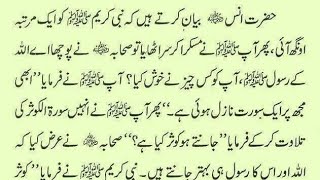 حضرت انس ؓ بیان کرتے ہیں کہ نبی کریم ﷺ کو ایک مرتبہ
اونگھ آئی، پھر آپ ﷺ نے مسکرا کر سر اٹھایا تو صحابہ ؓ نے پوچھا اے اللہ
کے رسول ﷺ، آپ کو کس چیز نے خوش کیا؟ آپ ﷺ نے فرمایا ”ابھی
مجھ پر ایک سورت نازل ہوئی ہے۔“ پھر آپ ﷺ نے انہیں سورۃ الکوثر کی
تلاوت کر کے فرمایا ”جانتے ہو کوثر کیا ہے؟“ صحابہ ؓ نے عرض کیا کہ
اللہ اور اس کا رسول ہی بہتر جانتے ہیں۔ نبی کریم ﷺ نے فرمایا ”کوثر